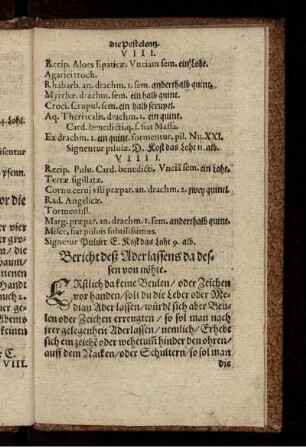 die Pestelentz.
VIII.
Recip. Aloes Epaticæ. Vnciam sem. ein Lohr.
Agarici troch.
Rhabarb. an. drachm. 1. sem. anderthalb quint.
Myrrhæ drachm. sem. ein halb quint.
Croci. scrupul. sem. ein halb scrupel.
Aq. Theriacalis. drachm. 1. ein quint.
Card. benedicti. q. s. fiat Massa.
Ex drachm. 1. ein quint. formentur. pil. Nu. XXI.
Signentur pilulæ. D. Kost das Loht 11. alb.
VIIII.
Recip. Pulu. Card. benedicti. Vnciā sem ein Lohr.
Terræ sigillatæ.
Cornu cerui vsti præpar. an. drachm. 2. zwey quintel.
Rad. Angelicæ.
Tormentill.
Marg. præpar. an. drachm. 1. sem. anderthalb quint.
Misce, fiat puluis subtilissimus.
Signetur Puluer E. Kost das Loht 9. alb.
Bericht deß Aderlassens da dessen
sen von nöhte.
ERstlich da keine Beulen / oder Zeichen
vorhanden / solt du die Leber oder Median
dian Ader lassen / würde sich aber Beulen
len oder Zeichen erreugten / so sol man nach
jrer gelegenheit Aderlassen / nemlich / Erhebt
sich ein zeichē oder wehetum̄ hinder den ohren /
auff dem Nacken / oder Schultern / so sol man
die
4. Loht.
pfenn.
kleinen
C.
VIII.